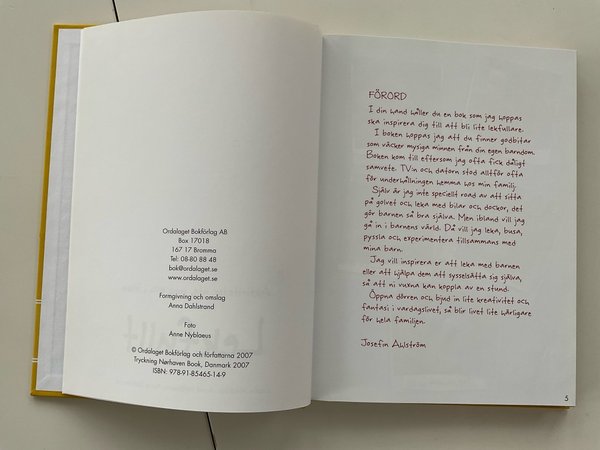 Ordalaget Bokförlag AB
Box 17018
167 17 Bromma
Tel: 08-80 88 48
bok@ordalaget.se
www.ordalaget.se
Formgivning och omslag
Anna Dahlstrand
Foto
Anne Nyblaeus
© Ordalaget Bokförlag och författarna 2007
Tryckning Nørhaven Book, Danmark 2007
ISBN: 978-91-85465-14-9
FÖRORD
I din hand håller du en bok som jag hoppas
ska inspirera dig till att bli lite lekfullare.
I boken hoppas jag att du finner godbitar
som väcker mysiga minnen från din egen barndom.
Boken kom till eftersom jag ofta fick dåligt
samvete. TV:n och datorn stod alltför ofta
för underhållningen hemma hos min familj.
Själv är jag inte speciellt road av att sitta
på golvet och leka med bilar och dockor, det
gör barnen så bra själva. Men ibland vill jag
gå in i barnens värld. Då vill jag leka, busa,
pyssla och experimentera tillsammans med
mina barn.
Jag vill inspirera er att leka med barnen
eller att hjälpa dem att sysselsätta sig själva,
så att ni vuxna kan koppla av en stund.
Öppna dörren och bjud in lite kreativitet och
fantasi i vardagslivet, så blir livet lite härligare
för hela familjen.
Josefin Ahlström
5